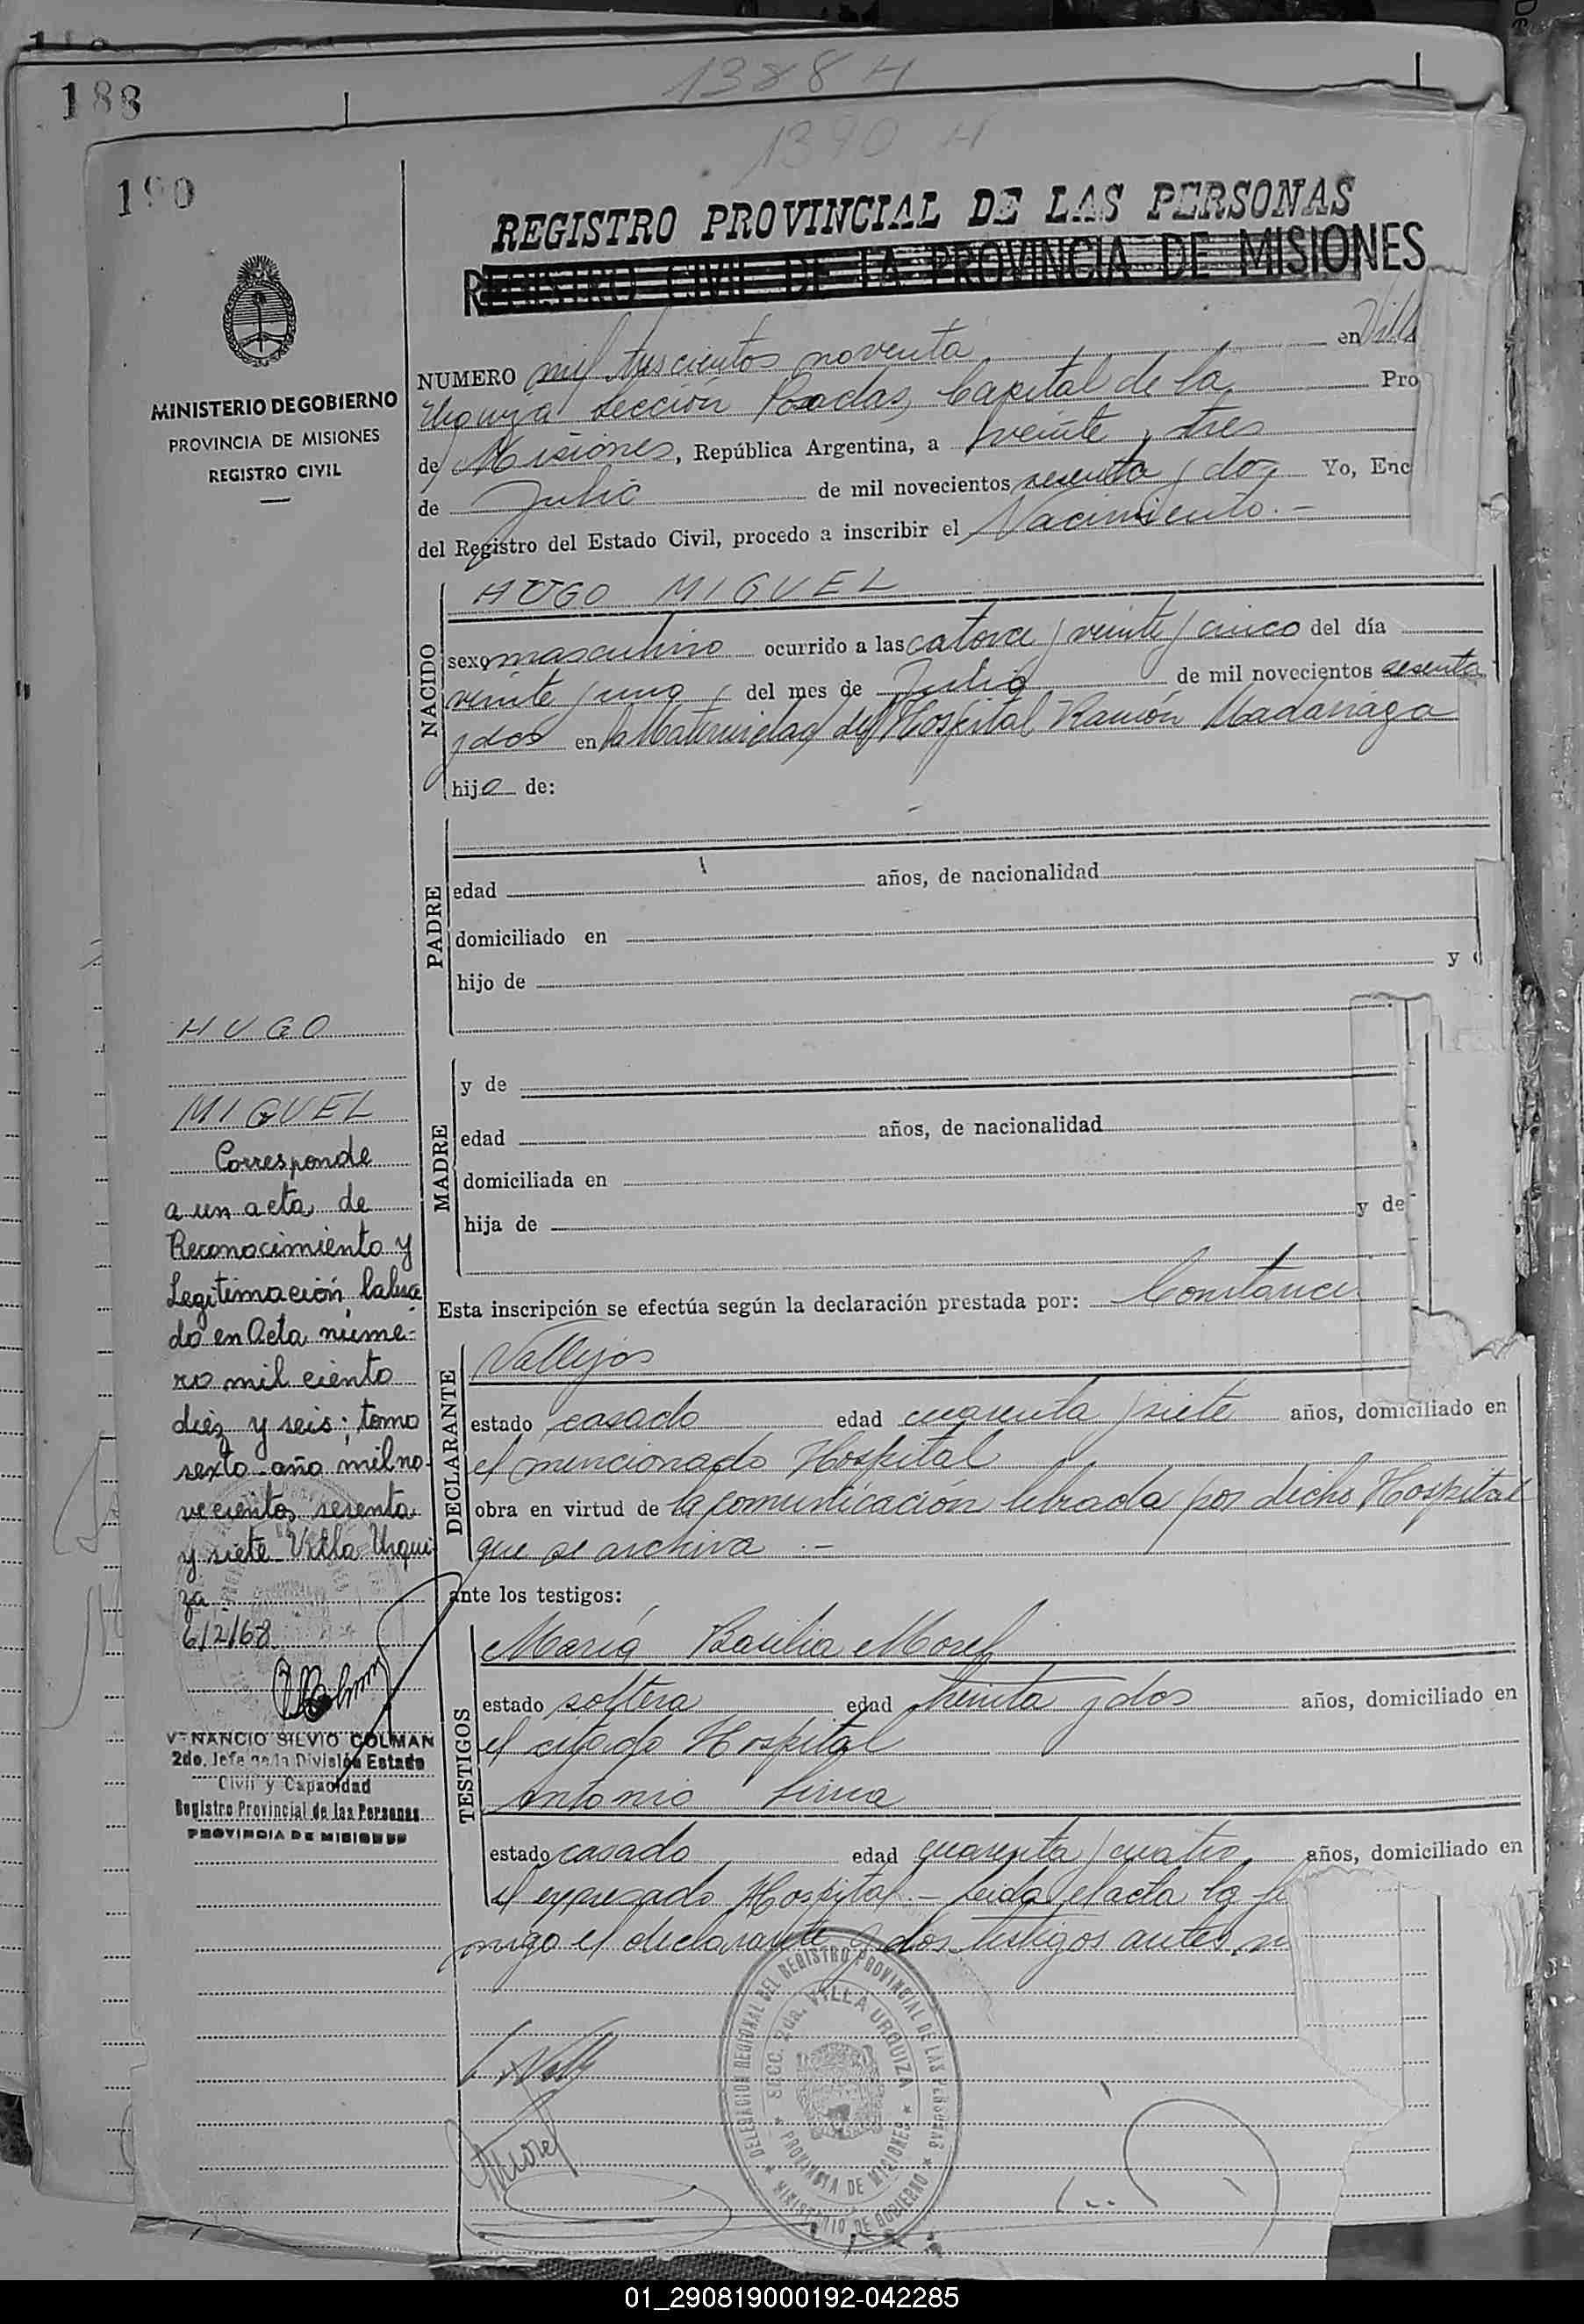 188
1388 H
1390 H
190
REGISTRO PROVINCIAL DE LAS PERSONAS
REGISTRO CIVIL DE LA PROVINCIA DE MISIONES
MINISTERIO DE GOBIERNO
PROVINCIA DE MISIONES
REGISTRO CIVIL
NUMERO mil trescientos noventa en Villa
Urquiza Sección Posadas, Capital de la Pro
de Misiones, República Argentina, a veinte y tres
de Julio de mil novecientos sesenta y dos Yo, Enc
del Registro del Estado Civil, procedo a inscribir el Nacimiento.-
NACIDO
HUGO MIGUEL
sexo masculino ocurrido a las catorce y veinte y cinco del día
veinte y uno del mes de Julio de mil novecientos sesenta
y dos en la Maternidad del Hospital Ramón Madariaga
hijo de:
PADRE
edad años, de nacionalidad
domiciliado en
hijo de y
MADRE
y de
edad años, de nacionalidad
domiciliada en
hija de y de
Esta inscripción se efectúa según la declaración prestada por: Constanci
DECLARANTE
Vallejos
estado casado edad cuarenta y siete años, domiciliado en
el mencionado Hospital
obra en virtud de la comunicación librada por dicho Hospital
que se archiva .-
ante los testigos:
TESTIGOS
María Basilia Morel
estado soltera edad treinta y dos años, domiciliado en
el citado Hospital
Antonio
estado casado edad cuarenta y cuatro años, domiciliado en
el expresado Hospital.- Leida el acta la fi
migo el declarante y dos testigos antes n
HUGO
MIGUEL
Corresponde
a un acta de
Reconocimiento y
Legitimación labra
do en Acta núme-
ro mil ciento
diez y seis; tomo
sexto año mil no-
vecientos sesenta
y siete Villa Urqui
za
6/2/68
VENANCIO SILVIO COLMAN
2do. Jefe de la División Estado
Civil y Capacidad
Registro Provincial de las Personas
PROVINCIA DE MISIONES
DELEGACION REGIONAL DEL REGISTRO PROVINCIAL DE LAS PERSONAS
SECC. 2da. VILLA URQUIZA
PROVINCIA DE MISIONES
MINISTERIO DE GOBIERNO
Morel
01_290819000192-042285